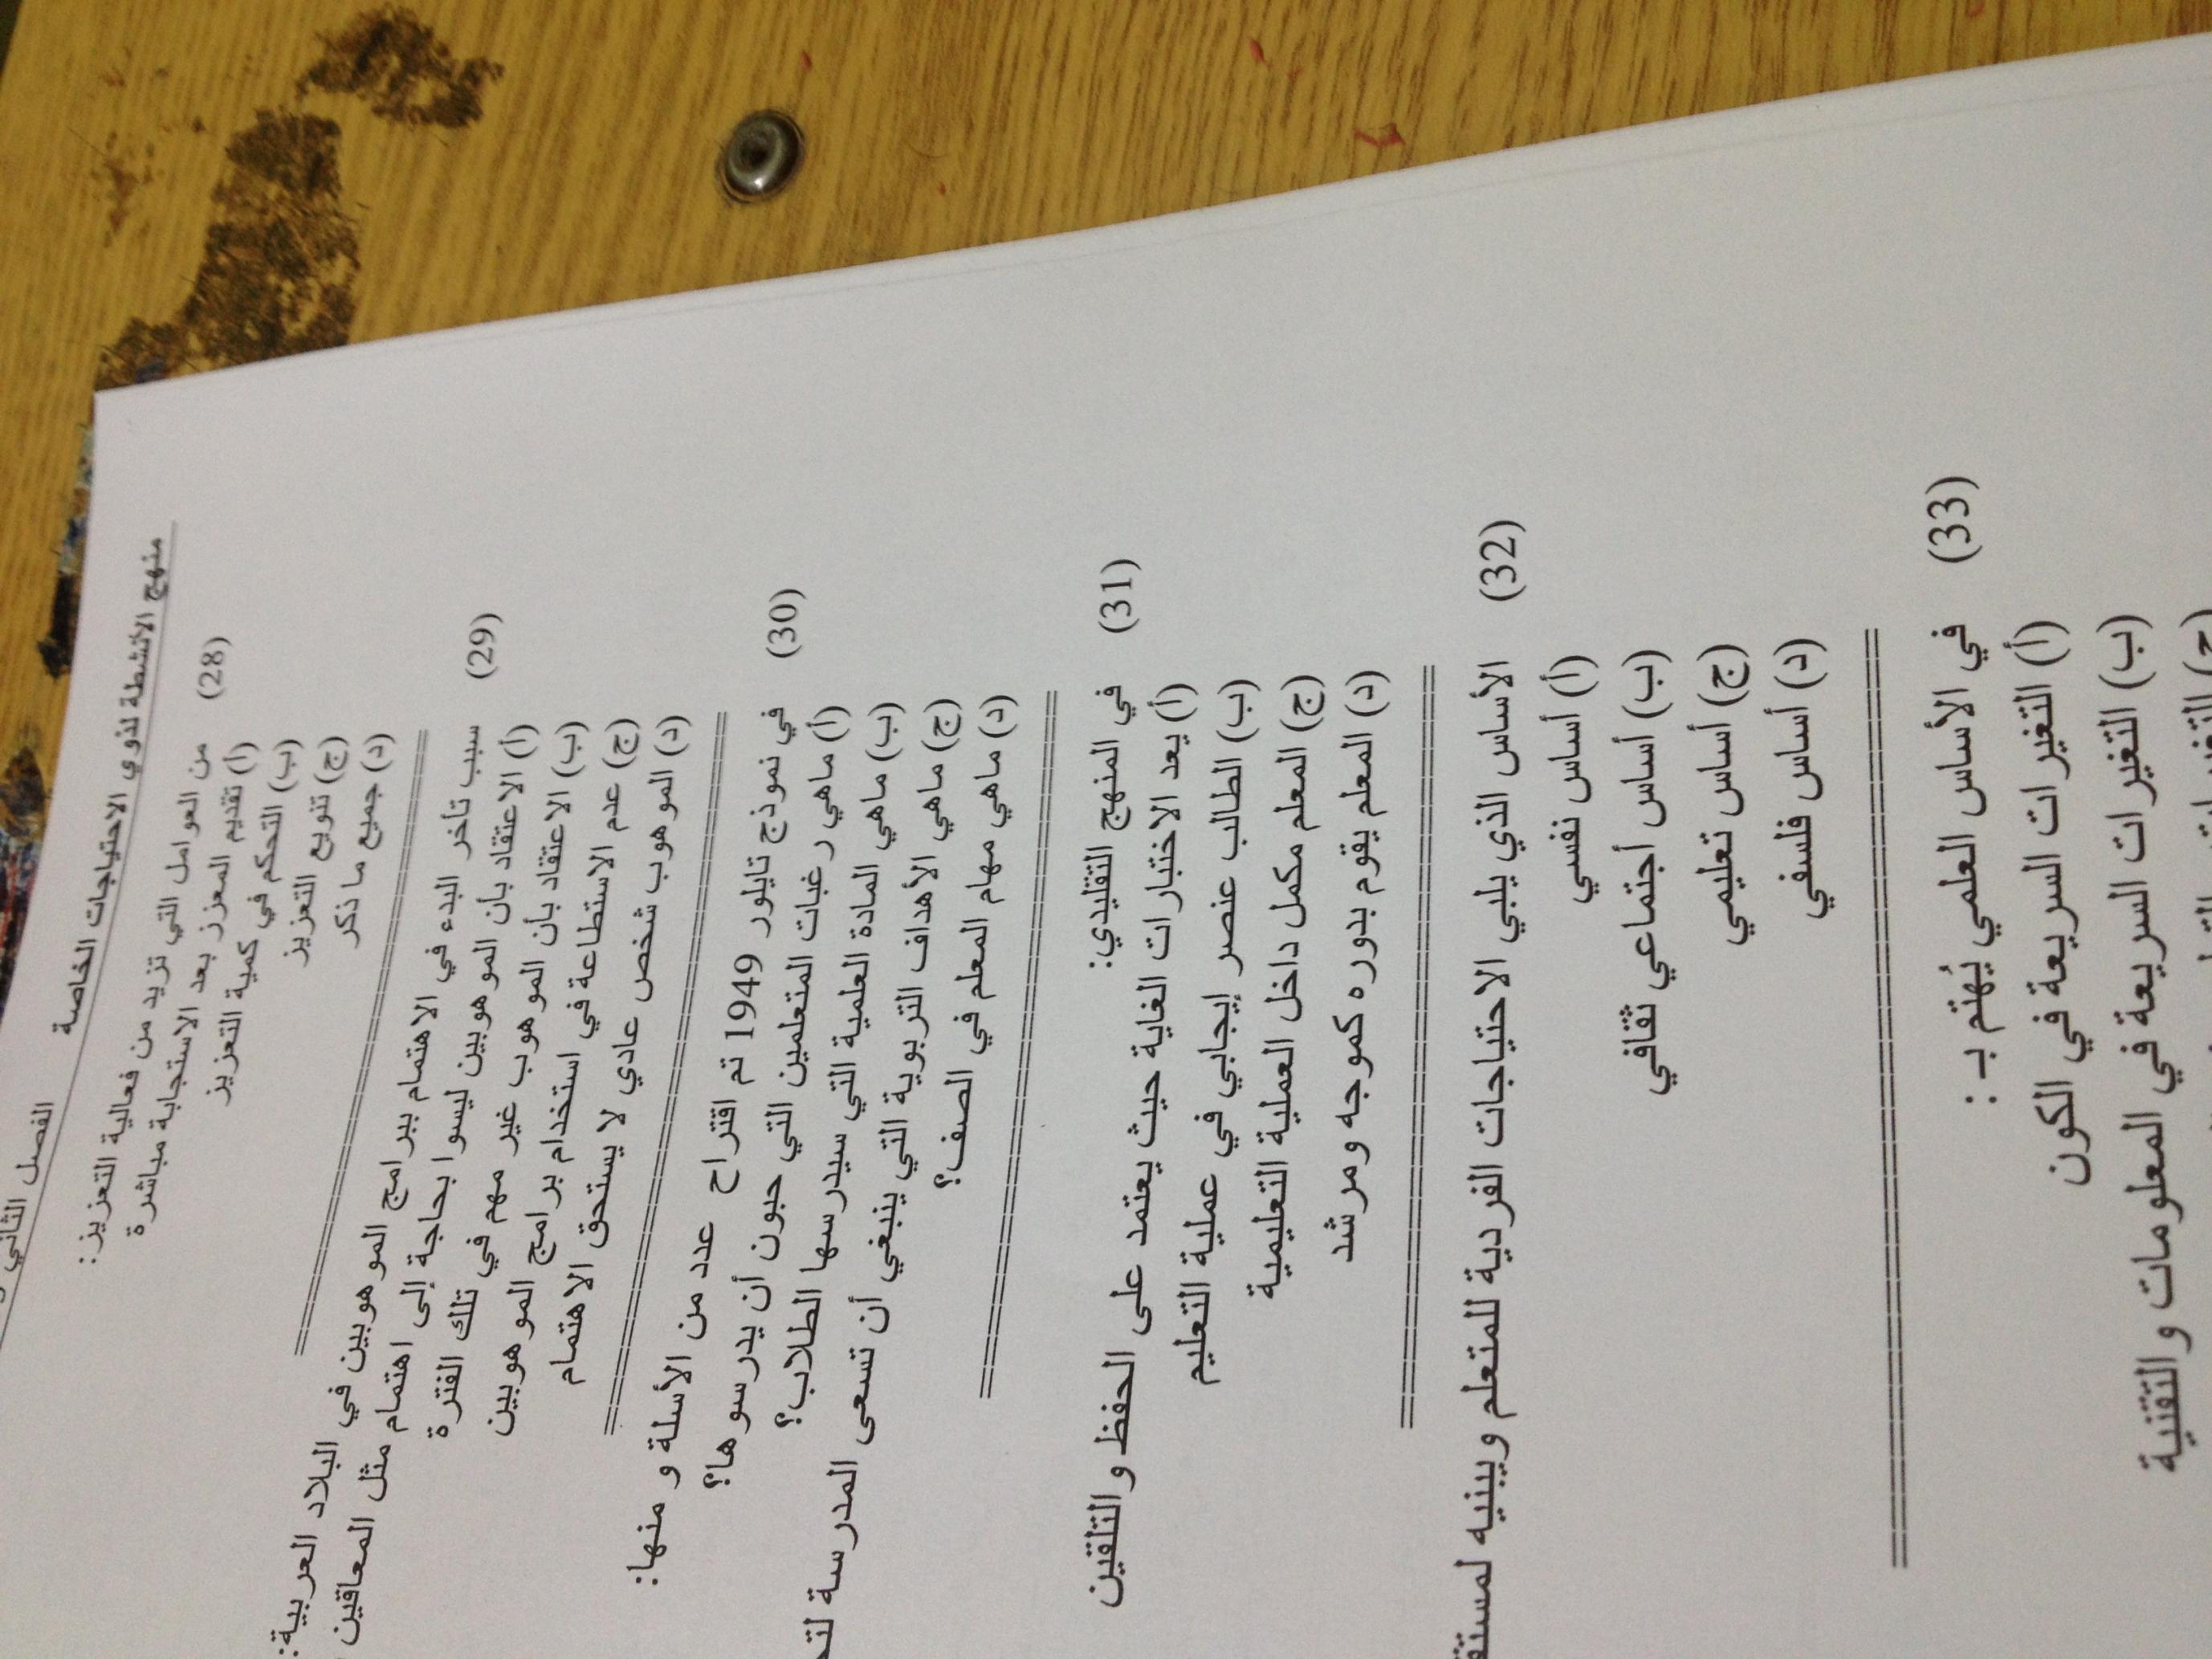 منهج الأنشطة لذوي الاحتياجات الخاصة الفصل الثاني
(28) من العوامل التي تزيد من فعالية التعزيز:
(أ) تقديم المعزز بعد الاستجابة مباشرة
(ب) التحكم في كمية التعزيز
(ج) تنويع التعزيز
(د) جميع ما ذكر
(29) سبب تأخر البدء في الاهتمام ببرامج الموهوبين في البلاد العربية:
(أ) الاعتقاد بأن الموهوبين ليسوا بحاجة إلى اهتمام مثل المعاقين
(ب) الاعتقاد بأن الموهوب غير مهم في تلك الفترة
(ج) عدم الاستطاعة في استخدام برامج الموهوبين
(د) الموهوب شخص عادي لا يستحق الاهتمام
(30) في نموذج تايلور 1949 تم اقتراح عدد من الأسلة و منها:
(أ) ماهي رغبات المتعلمين التي حبون أن يدرسوها؟
(ب) ماهي المادة العلمية التي سيدرسها الطلاب؟
(ج) ماهي الأهداف التربوية التي ينبغي أن تسعى المدرسة
(د) ماهي مهام المعلم في الصف؟
(31) في المنهج التقليدي:
(أ) يعد الاختبارات الغاية حيث يعتمد على الحفظ والتلقين
(ب) الطالب عنصر إيجابي في عملية التعليم
(ج) المعلم مكمل داخل العملية التعليمية
(د) المعلم يقوم بدوره كموجه ومرشد
(32) الأساس الذي يلبي الاحتياجات الفردية للمتعلم ويبنيه
(أ) أساس نفسي
(ب) أساس أجتماعي ثقافي
(ج) أساس تعليمي
(د) أساس فلسفي
(33) في الأساس العلمي يُهتم بـ :
(أ) التغيرات السريعة في الكون
(ب) التغيرات السريعة في المعلومات والتقنية